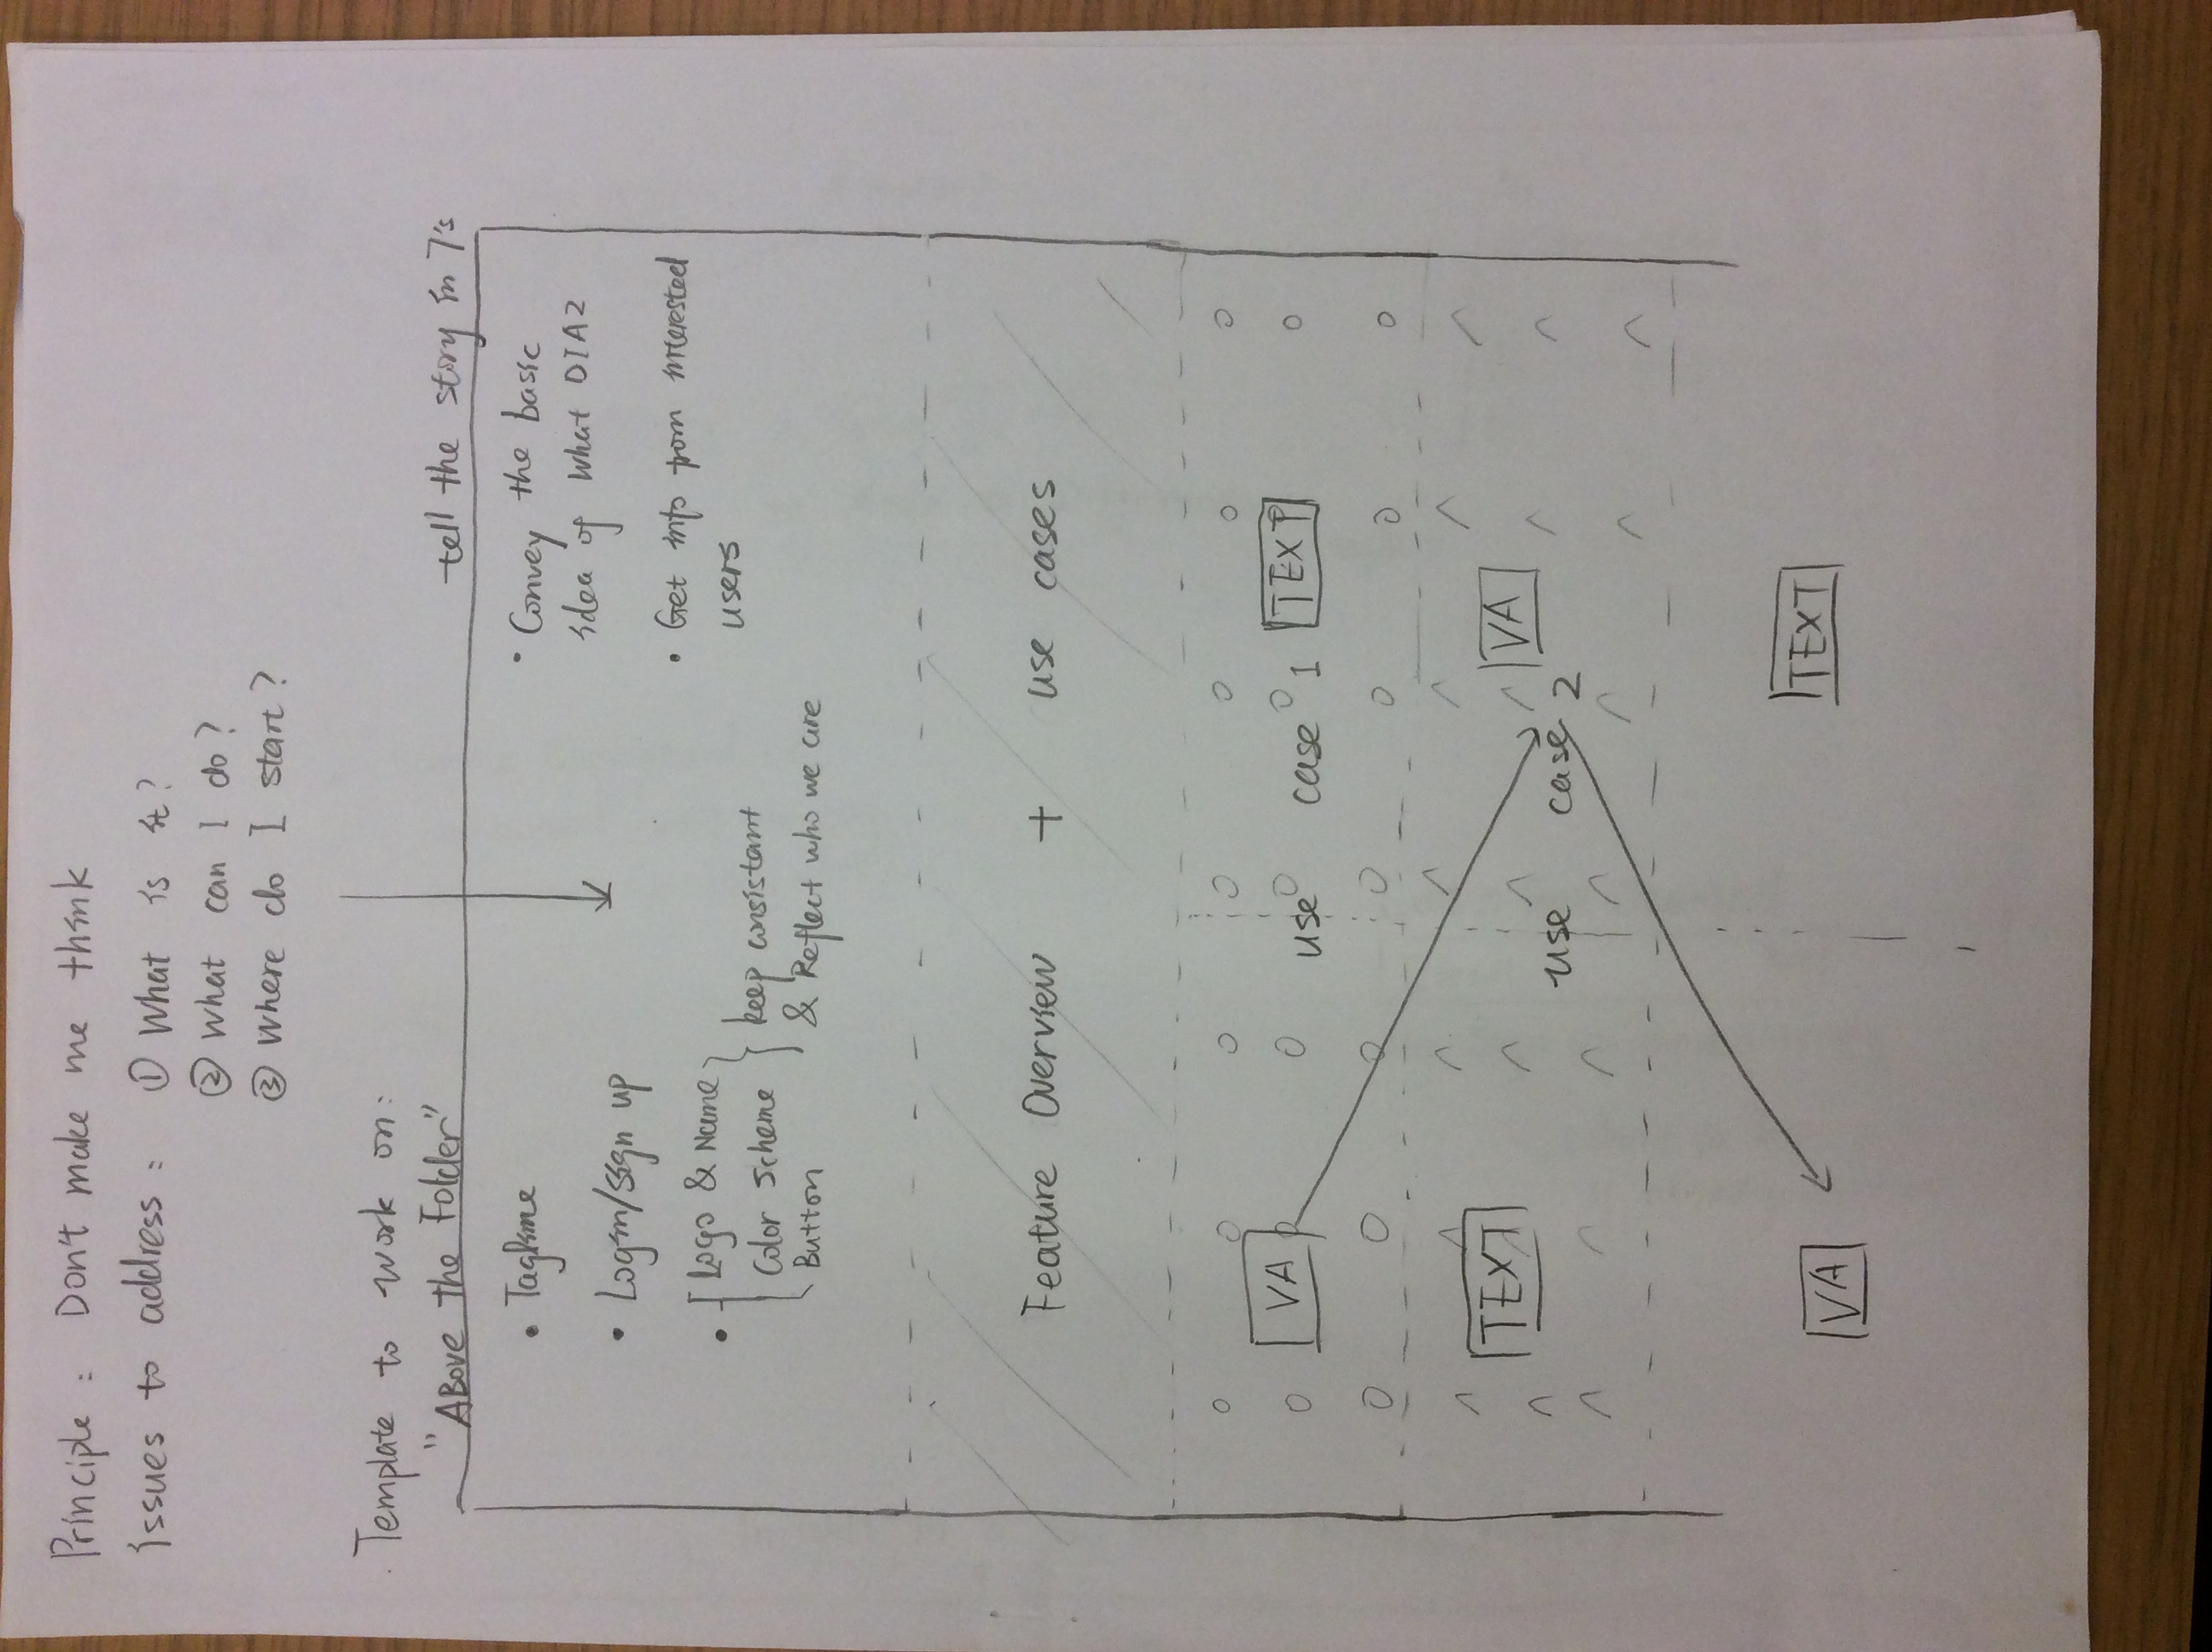 Principle : Don't make me think
issues to address : ① What is it?
② What can I do?
③ Where do I start?
Template to work on:
"ABove the Folder"
tell the story in 7's
• Tagline
• Login/Sign up
• Logo & Name
Color Scheme
Button
keep consistant
& Reflect who we are
• Convey the basic
idea of what DIA2
• Get info from interested
users
Feature Overview + use cases
VA use case 1 TEXT
TEXT VA
use case 2
VA TEXT